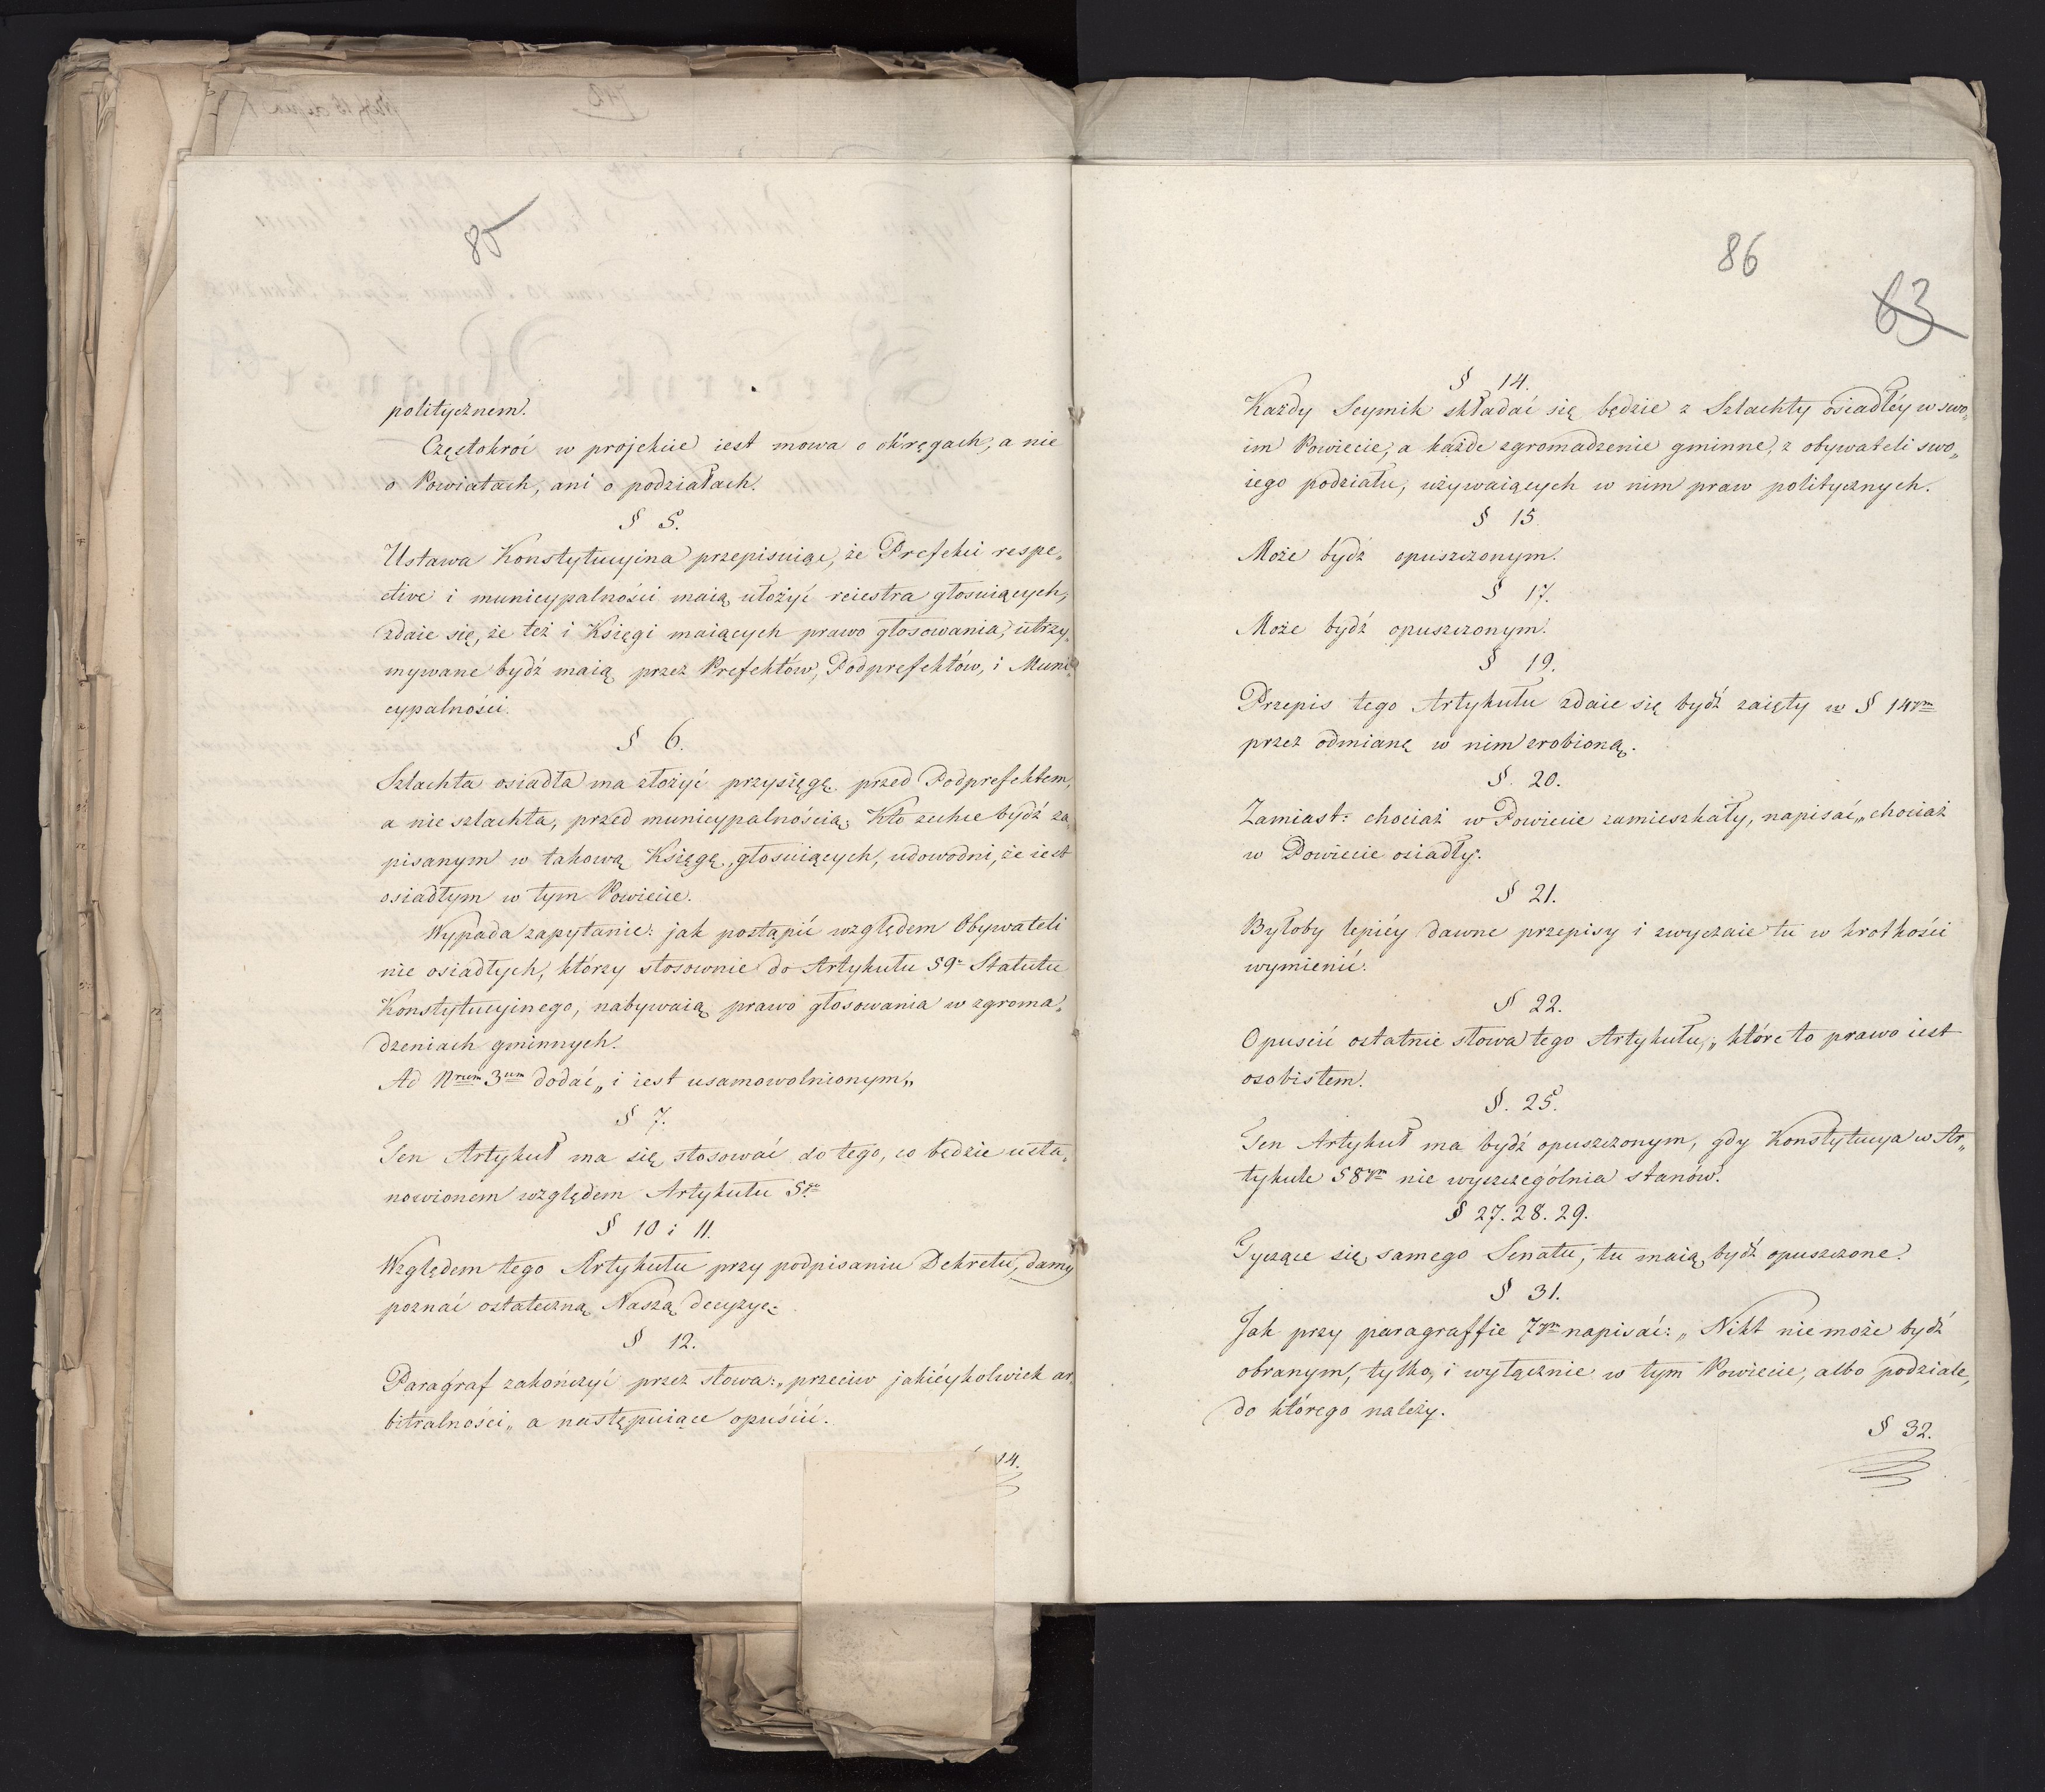 85
politycznem.
Częstokroć w projekcie iest mowa o okręgach, a nie
o Powiatach, ani o podziałach.
§ 5.
Ustawa Konstytucyina przepisuiąc, że Prefekci respe„
ctive i municypalności maią ułożyć reiestra głosuiących,
zdaie się, że też i Księgi maiących prawo głosowania, utrzy„
mywane bydź maią przez Prefektów, Podprefektów, i Muni„
cypalności.
§ 6.
Szlachta osiadła ma złożyć przysięgę przed Podprefektem,
a nie szlachta, przed municypalnością; Kto zechce bydź za„
pisanym w takową Księgę głosuiących, udowodni, że iest
osiadłym w tym Powiecie.
Wypada zapytanie: jak postąpić względem Obywateli
nie osiadłych, którzy stosownie do Artykułu 59º Statutu
Konstytucyinego, nabywaią prawo głosowania w zgroma„
dzeniach gminnych.
Ad Nrum 3um dodać „i iest usamowolnionym„
§ 7.
Ten Artykuł ma się stosować do tego, co będzie usta„
nowionem względem Artykułu 5go
§ 10 i 11.
Względem tego Artykułu przy podpisaniu Dekretu, damy
poznać ostateczną Naszą decyzyę.
§ 12.
Paragraf zakończyć przez słowa: „przeciw jakiéykolwiek ar„
bitralności„ a następuiące opuścić.
14.
86
63
§ 14.
Każdy Seymik składać się będzie z Szlachty osiadłéy w swo„
im Powiecie, a każde zgromadzenie gminne, z obywateli swo„
iego podziału, używaiących w nim praw politycznych.
§ 15.
Może bydź opuszczonym.
§ 17.
Może bydź opuszczonym.
§ 19.
Przepis tego Artykułu zdaie się bydź zaięty w § 14ym
przez odmianę w nim zrobioną.
§. 20.
Zamiast: chociaż w Powiecie zamieszkały, napisać „chociaż
w Powiecie osiadły.
§ 21.
Byłoby lepiéy dawne przepisy i zwyczaie tu w krotkości
wymienić.
§ 22.
Opuścić ostatnie słowa tego Artykułu, „które to prawo iest
osobistem.
§. 25.
Ten Artykuł ma bydź opuszczonym, gdy Konstytucya w Ar„
tykule 58ym nie wyszczególnia stanów.
§ 27. 28. 29.
Tyczące się samego Senatu, tu maią bydź opuszczone.
§ 31.
Jak przy paragraffie 7ym napisać: „Nikt nie może bydź
obranym, tylko, i wyłącznie w tym Powiecie, albo podziale,
do którego należy.
§ 32.